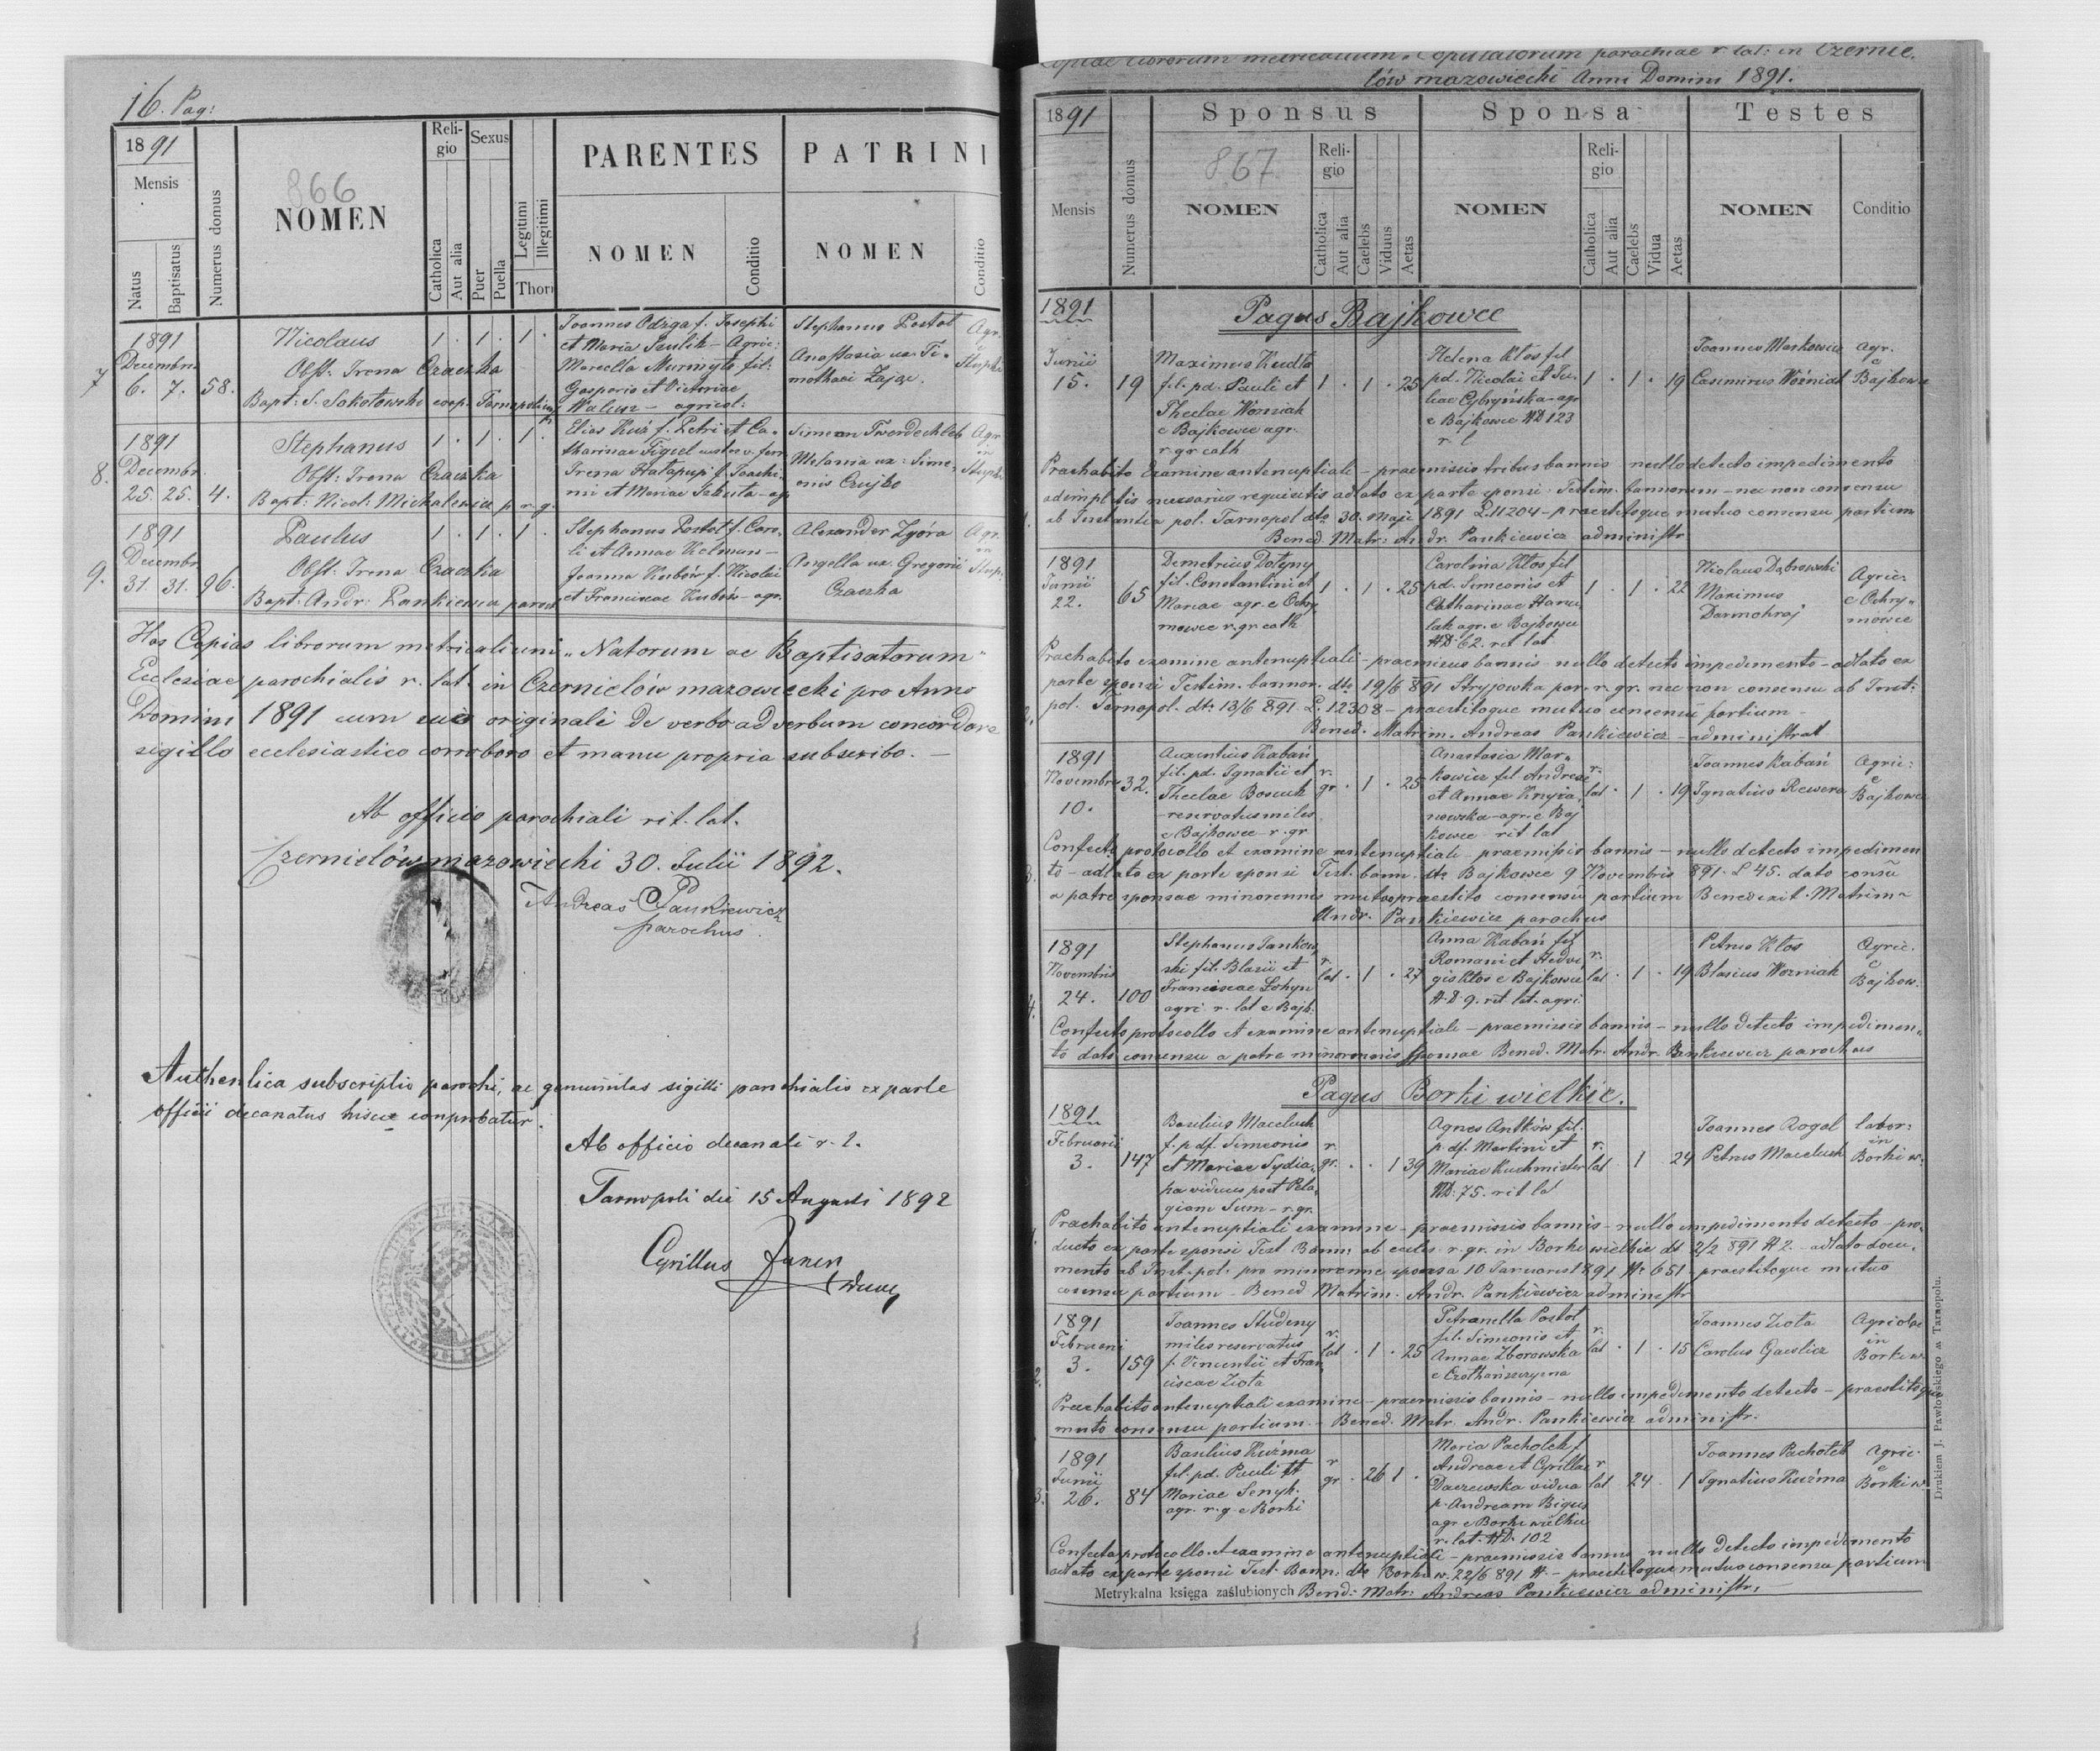 16. Pag:
1891
Mensis
Natus
Baptisatus
Numerus domus
866
NOMEN
Religio
Catholica
Aut alia
Sexus
Puer
Puella
Legitimi
Illegitimi
Thori
PARENTES
NOMEN
Conditio
PATRINI
NOMEN
Conditio
7
1891
Decembris
6. 7. 58.
Nicolaus
Obst: Irena Czaczka
Bapt: S. Sokołowski coop. Tarnopolien
1 . 1 . 1 .
Joannes Odzga f. Josephi
et Maria Szulik – Agric:
Marcella Murmyło fil:
Gasparis et Victoriae
Walusz – agricol:
Stephanus Postoł
Anastasia ux. Ti-
mothaei Zając.
Agr.
8.
1891
Decembr.
25. 25. 4.
Stephanus
Obst: Irena Czaczka
Bapt: Nicol: Michalewicz p. r. g.
1 . 1 . 1 .
Elias Kuź f. Petri et Ca-
tharinae Figiel
Irena Hałapupi f. Joachi-
mi et Mariae
Simeon Twerdochleb
Melania ux: Sime-
onis Czujko
Agr
9.
1891
Decembr
31. 31. 96.
Paulus
Obst: Irena Czaczka
Bapt: Andr: Pankiewicz paroch
1 . 1 . 1 .
Stephanus Postoł f. Caro-
li et Annae Kelman –
Joanna Kubów f. Nicolai
et Franciscae Kubów – agr.
Alexander Zgóra
Angella ux. Gregorii
Czaczka
Agr.
Has Copias librorum metricalium „Natorum ac Baptisatorum"
Ecclesiae parochialis r. lat. in Czernielów mazowiecki pro Anno
Domini 1891 cum suis originali de verbo ad verbum concordare
sigillo ecclesiastico corroboro et manu propria subscribo. –
Ab officio parochiali rit. lat.
Czernielów mazowiecki 30. Julii 1892.
Andreas Pankiewicz
parochus.
Authentica subscriptio parochi, ac genuinitas sigilli parochialis ex parte
officii decanatus hisce comprobatur.
Ab officio decanali r. l.
Tarnopoli die 15 Augusti 1892
Cyrillus
Copiae librorum metricalium Copulatorum parochiae r. lat: in Czernie-
lów mazowiecki Anni Domini 1891.
1891
Sponsus
Sponsa
Testes
Mensis
Numerus domus
867
NOMEN
Religio
Catholica
Aut alia
Caelebs
Viduus
Aetas
NOMEN
Religio
Catholica
Aut alia
Caelebs
Vidua
Aetas
NOMEN
Conditio
1891
Pagus Bajkowce
1.
Junii
15. 19
Maximus Kudła
fil. pd. Pauli et
Theclae Woźniak
e Bajkowce agr.
r. gr cath
1 . 1 . 25
Helena Kłos fil
pd. Nicolai et Ju-
liae Cybryńska – agr
e Bajkowce ND 123
r. l
1 . 1 . 19
Joannes Markowicz
Casimirus Woźniak
agr.
e
Bajkowce
Praehabito Examine antenuptiali – praemissis tribus bannis nullo detecto impedimento
adimpletis necessariis requisitis adlato ex parte sponsi: Testim. bannorum – nec non consensu
ab Instantia pol. Tarnopol dto 30. Maji 1891 L. 11204 – praestitoque mutuo consensu partium
Bened. Matr: Andr. Pankiewicz administr
2.
1891
Junii
22. 65
Demetrius Dołyny
fil. Constantini et
Mariae agr. e Ochry-
mowce r. gr cath
1 . 1 . 25
Carolina Kłos fil
pd. Simeonis et
Catharinae Hanu-
lak agr. e Bajkowce
ND. 62. rit lat
1 . 1 . 22
Nicolaus Dąbrowski
Maximus
Darmohraj
Agric:
e Ochry-
mowce
Praehabito examine antenuptiali – praemissis bannis – nullo detecto impedimento – adlato ex
parte sponsi Testim. bannor. dto 19/6 891 Stryjowka par. r. gr. nec non consensu ab Inst:
pol. Tarnopol. dto. 13/6 891. L. 12308 – praestitoque mutuo consensu partium –
Bened. Matrim. Andreas Pankiewicz – administrat
3.
1891
Novembris
10. 32.
Auxentius Kabań
fil. pd. Ignatii et
Theclae
– reservatus miles
e Bajkowce – r. gr
r. gr . 1 . 25
Anastasia Mar-
kowicz fil Andreae
et Annae Krzyża-
nowska – agr. e Baj
kowce rit lat
r. lat . 1 . 19
Joannes Kabań
Ignatius Rewera
Agric:
e
Bajkowce
Confecto protocollo et examine antenuptiali – praemissis bannis – nullo detecto impedimen
to – adlato ex parte sponsi Test. bann. dto Bajkowce 9 Novembris 891. L 45. dato consũ
a patre sponsae minorennis mutuo praestito consensu partium Benedixit Matrim –
Andr. Pankiewicz parochus
4.
1891
Novembris
24. 100
Stephanus Jankow-
ski fil. Blasii et
Franciscae Łohyn
agri. r. lat e Bajk.
r. lat . 1 . 27
Anna Kabań fil
Romani et Hedvi
gis Kłos e Bajkowce
ND 9. rit lat. agri
r. lat . 1 . 19
Petrus Kłos
Blasius Woźniak
Agric.
e
Bajkow.
Confecto protocollo et examine antenuptiali – praemissis bannis – nullo detecto impedimen-
to dato consensu a patre minorennis sponsae Bened. Matr. Andr. Pankiewicz parochus
Pagus Borki wielkie.
1.
1891
Februarii
3. 147
Basilius Maceluch
f. p. df. Simeonis
et Mariae Sydia-
ha viduus post Pela-
giam Sum – r. gr.
r. gr. . . 1 39
Agnes Antków fil.
p. df. Martini et
Mariae Kuchmister
ND: 75. rit lat
r. lat . 1 . 24
Joannes Rogal
Petrus Maceluch
labor:
in
Borki w.
Praehabito antenuptiali examine – praemissis bannis – nullo impedimento detecto – pro-
ducto ex parte sponsi Test Bann: ab eccles. r. gr. in Borki wielkie dt 2/2 891 N 2. – adlato docu-
mento ab Inst. pol. pro minorenne sponsa 10 Januarii 1891 Nr 651 praestitoque mutuo
consensu partium – Bened Matrim. Andr. Pankiewicz administr
2.
1891
Februarii
3. 159
Joannes Studeny
miles reservatus
f. Vincentii et Fran-
ciscae Zioła
r. lat . 1 . 25
Petranella Postoł
fil. Simeonis et
Annae Zborowska
r. lat . 1 . 15
Joannes Zioła
Carolus
Agricolae
in
Borki w
Praehabito antenuptiali examine – praemissis bannis – nullo impedimento detecto – praestitoque
mutuo consensu partium. – Bened. Matr. Andr. Pankiewicz administr.
3.
1891
Junii
26. 84
Basilius Kuźma
fil. pd. Pauli et
Mariae Senyk.
agr. r. g. e Borki
r gr . 26 1 .
Maria Pachołek f.
Andreae et Cyrillae
Daczewska vidua
p. Andream Bigus
agr e Borki wielkie
r. lat. ND. 102
r lat 24 . 1
Joannes Pachołek
Ignatius Kuźma
Agric.
e
Borki w.
Confecto protocollo et examine antenuptiali – praemissis bannis nullo detecto impedimento
adlato ex parte sponsi Test. Bann: dto Borki w. 22/6 891 N. – praestitoque mutuo consensu partium
Metrykalna księga zaślubionych Bened: Matr: Andreas Pankiewicz administr.
Drukiem J. Pawłowskiego w Tarnopolu.